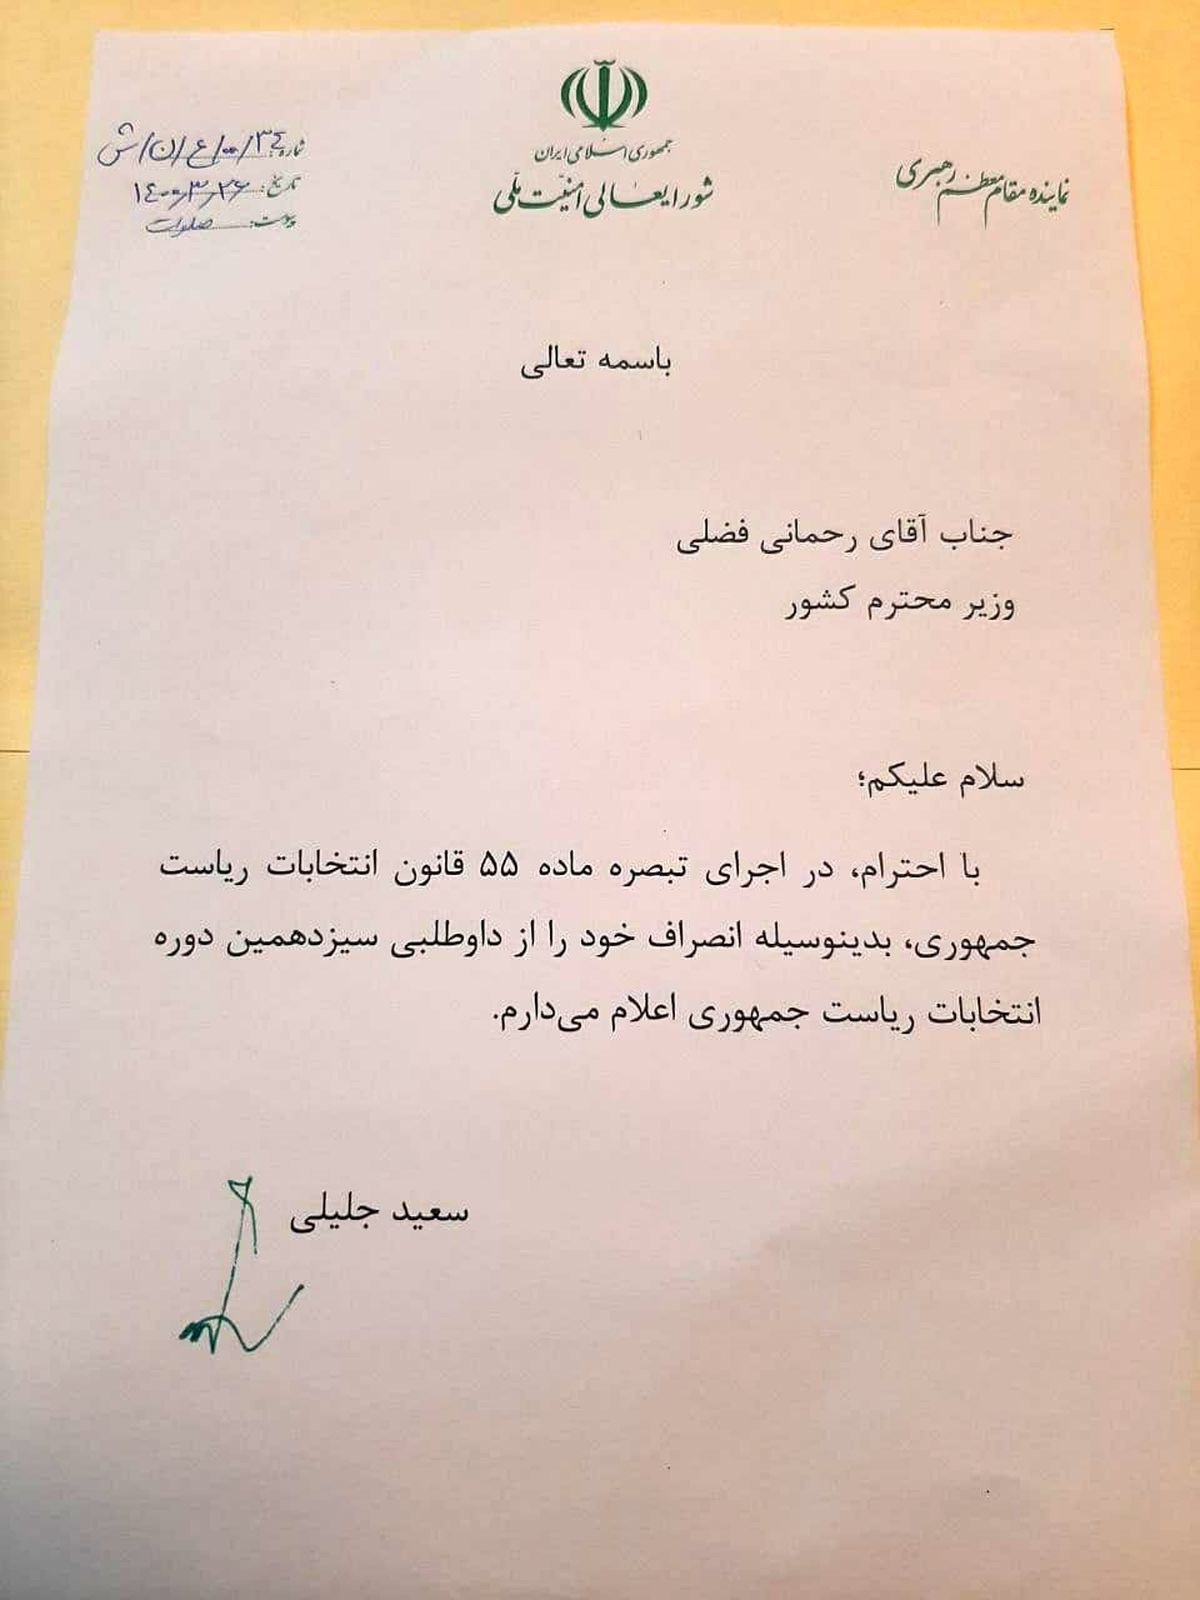 جمهوری اسلامی ایران
شورای عالی امنیت ملی
نماینده مقام معظم رهبری
شماره: ۳٤/۰۰/ع/ن/ش
تاریخ: ۱٤۰۰٫۳٫۲۶
پیوست: صلوات
باسمه تعالی
جناب آقای رحمانی فضلی
وزیر محترم کشور
سلام علیکم؛
با احترام، در اجرای تبصره ماده ۵۵ قانون انتخابات ریاست
جمهوری، بدینوسیله انصراف خود را از داوطلبی سیزدهمین دوره
انتخابات ریاست جمهوری اعلام می‌دارم.
سعید جلیلی